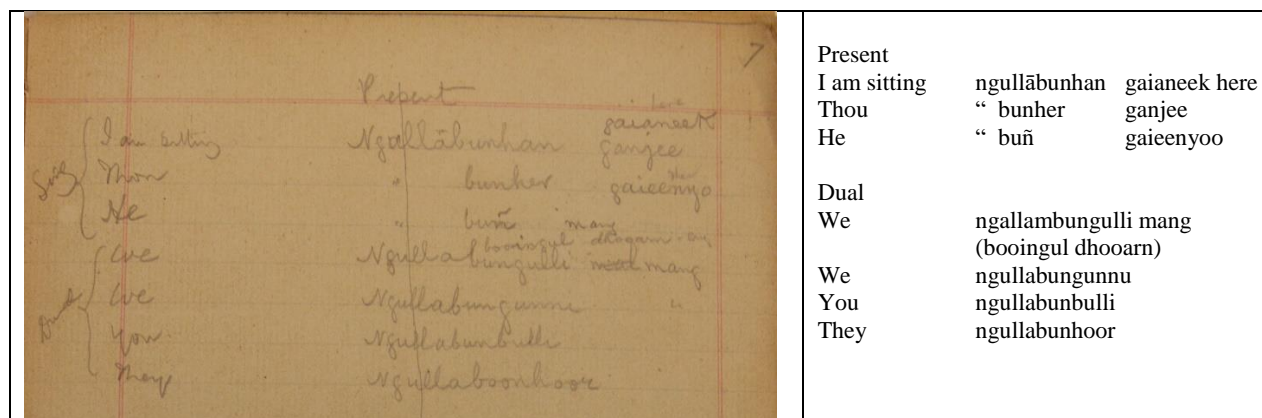 7
Present
here
I am sitting Ngullābunhan gaianeek
ganjee
Thou " bunher gaieenyo
He " buñ mang
booingul dhogarn
We Ngullabungulli mang
We Ngullabungunne "
You Ngullabunbulli
They Ngullaboonhoor
Sing
Dual
Present
I am sitting ngullābunhan gaianeek here
Thou “ bunher ganjee
He “ buñ gaieenyoo
Dual
We ngallambungulli mang
(booingul dhooarn)
We ngullabungunnu
You ngullabunbulli
They ngullabunhoor